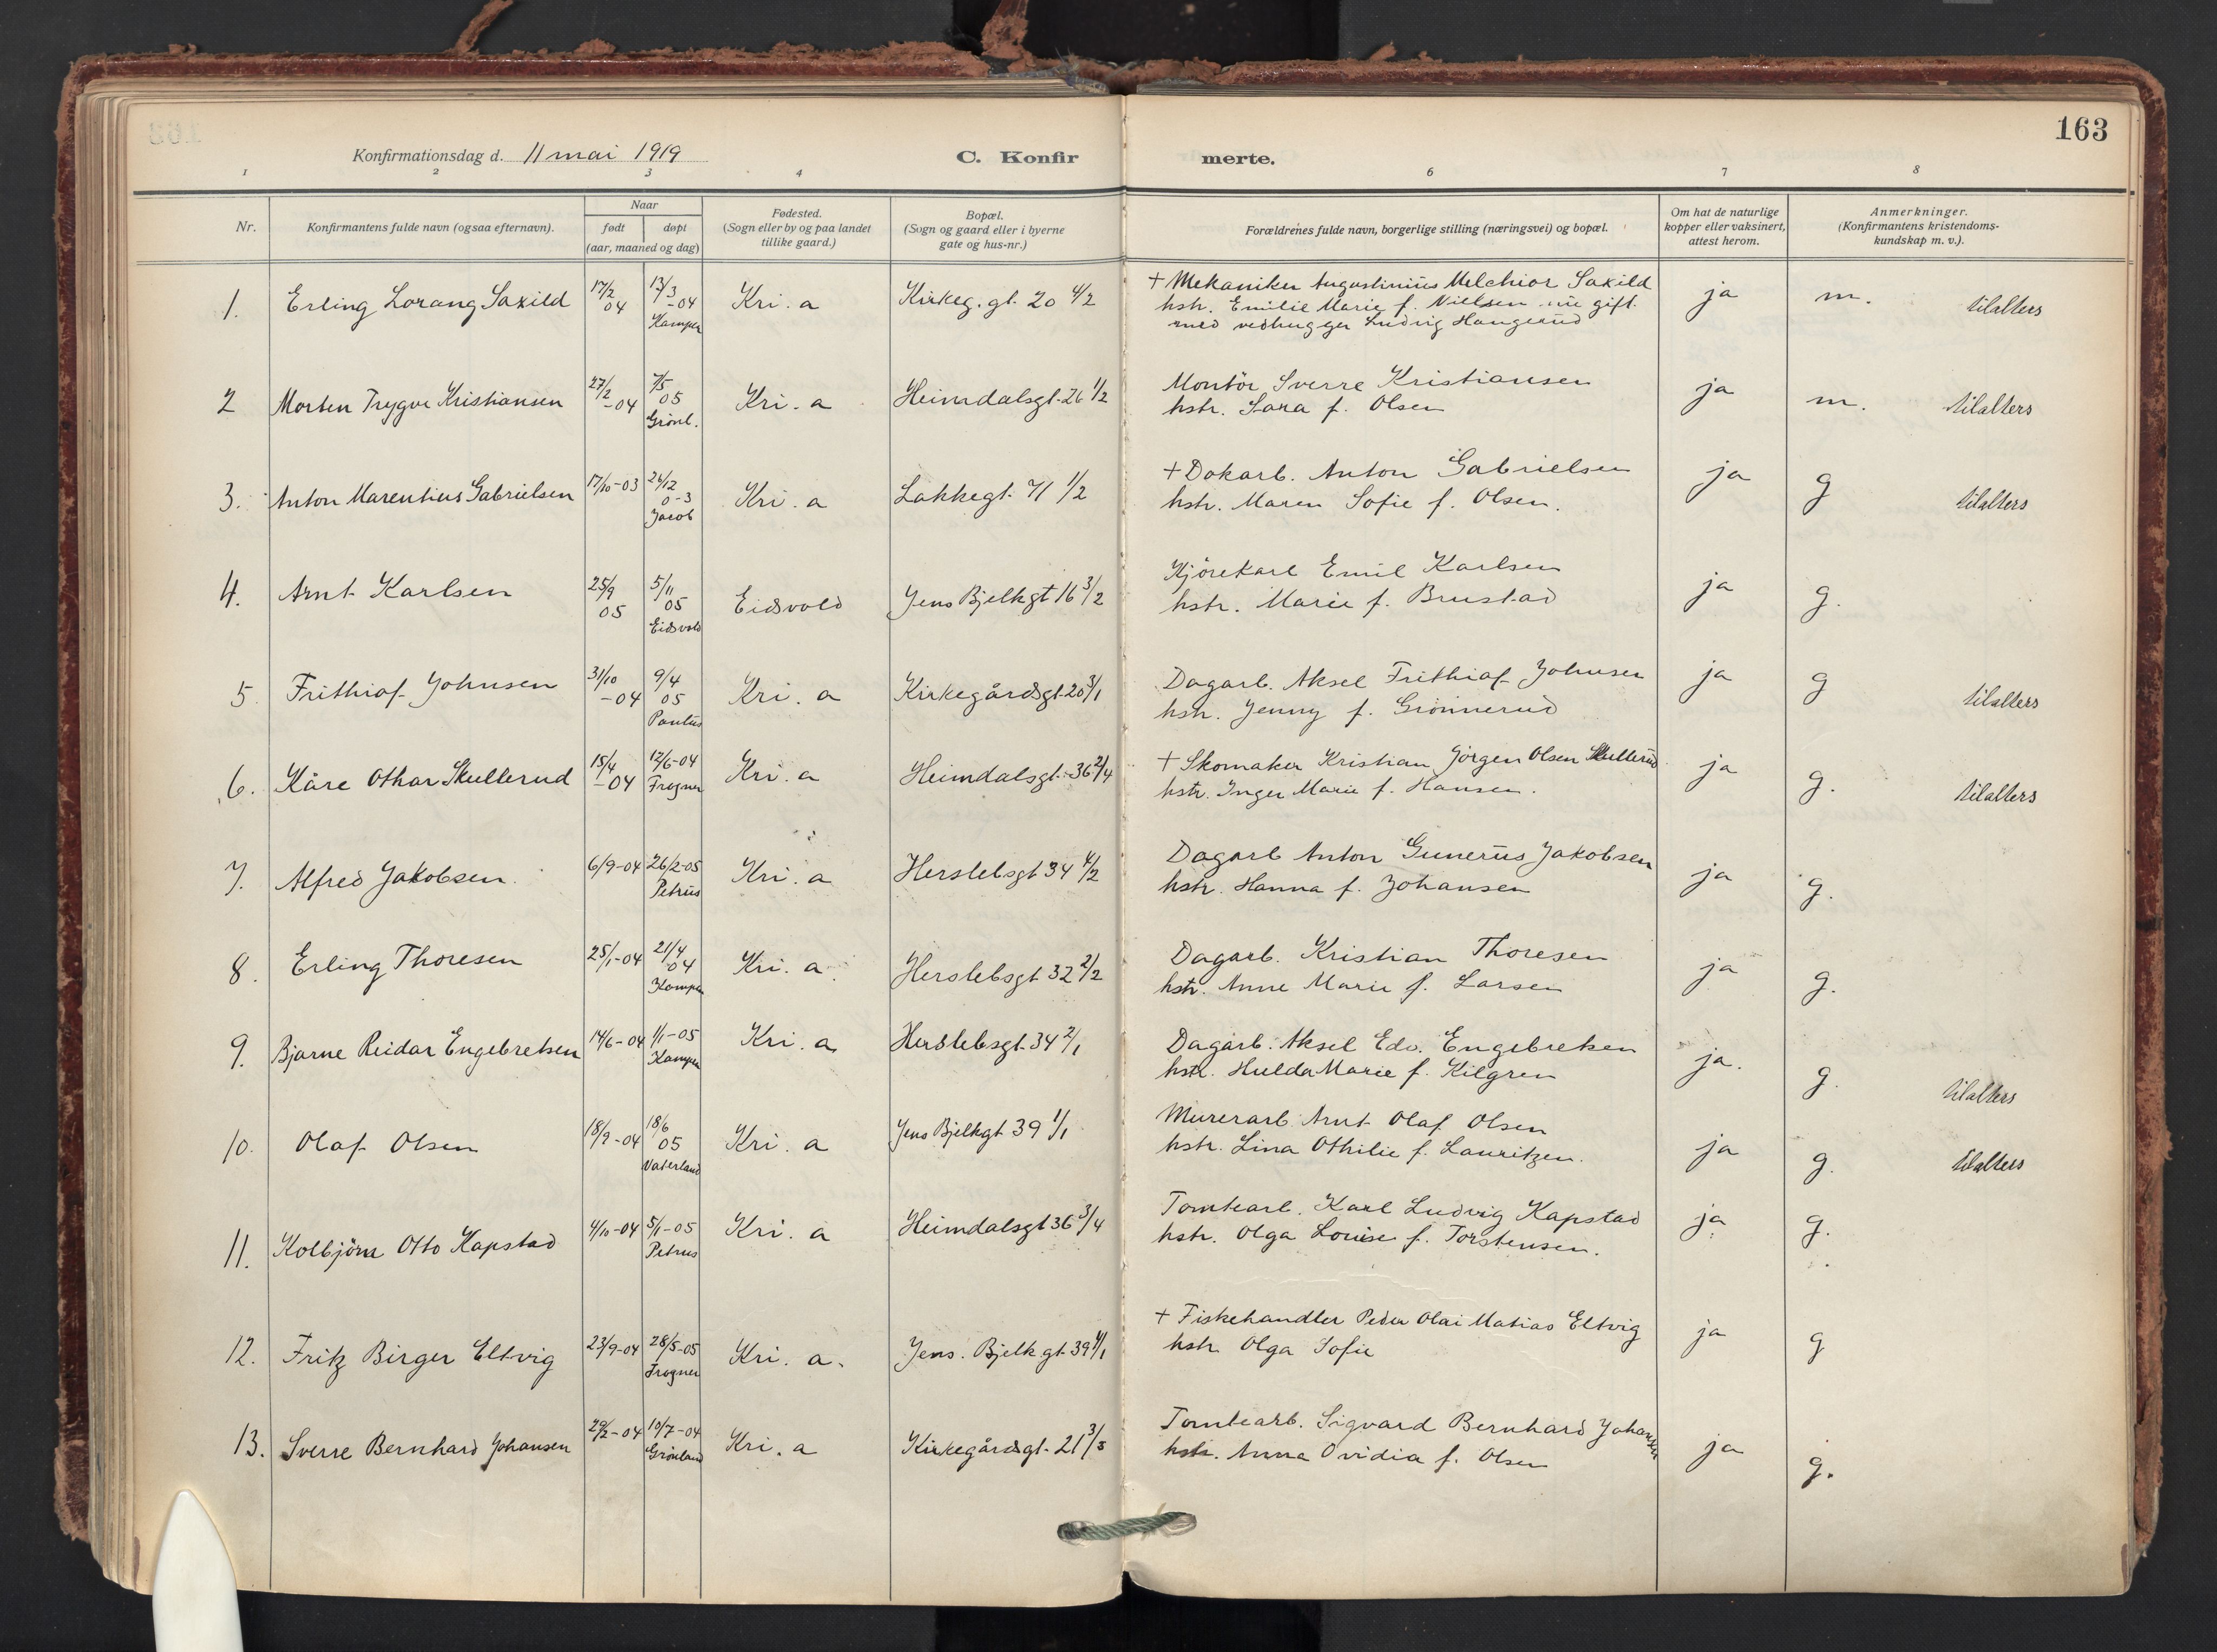 163
Konfirmationsdag d. 11 mai 1919
C. Konfirmerte.
1 2 3 4 6 7 8
Nr.
Konfirmantens fulde navn (ogsaa efternavn).
Naar
født
døpt
(aar, maaned og dag)
Fødested.
(Sogn eller by og paa landet
tillike gaard.)
Bopæl.
(Sogn og gaard eller i byerne
gate og hus-nr.)
Forældrenes fulde navn, borgerlige stilling (næringsvei) og bopæl.
Om hat de naturlige
kopper eller vaksinert,
attest herom.
Anmerkninger.
(Konfirmantens kristendoms-
kundskap m. v.).
1. Erling Lorang Saxild 17/2 04 13/3 -04 Kampen Kri.a Kirkeg.gt. 20 4/2
+ Mekaniker Augustinius Melchior Saxild ja m. tilalters
hstr. Emilie Marie f. Nielsen nu gift
med vedhugger Ludvig Haugerud
2 Morten Trygve Kristiansen 27/2 -04 7/5 05 Grønl. Kri.a Heimdalsgt. 26 1/2
Montör Sverre Kristiansen ja m. tilalters
hstr. Sara f. Olsen
3. Anton Marentius Gabrielsen 17/10-03 24/12 0-3 Jacob Kri.a Lakkegt. 71 1/2
+ Dokarb. Anton Gabrielsen ja g tilalters
hstr. Maren Sofie f. Olsen.
4. Arnt Karlsen 25/9 05 5/11 05 Eidsvold Eidsvold Jens Bjelkgt 16 3/2
Kjörekarl Emil Karlsen ja g.
hstr. Marie f. Brustad
5 Frithiof Johnsen 31/10 -04 9/4 05 Paulus Kri.a Kirkegårdsgt. 20 3/1
Dagarb. Aksel Frithiof Johnsen ja g tilalters
hstr. Jenny f. Grönnerud
6. Kåre Othar Skullerud 15/4 -04 12/6-04 Frogner Kri.a Heimdalsgt. 36 2/4
+ Skomaker Kristian Jörgen Olsen Skullerud ja g. tilalters
hstr. Inger Marie f. Hansen.
7. Alfred Jakobsen. 6/9-04 26/2-05 Petrus Kri.a Herslebsgt 34 4/2
Dagarb Anton Gunerius Jakobsen ja g.
hstr. Hanna f. Johansen
8. Erling Thoresen 25/1-04 21/4 -04 Kampen Kri.a. Herslebsgt 32 2/2
Dagarb. Kristian Thoresen ja g.
hstr. Anne Marie f. Larsen
9. Bjarne Reidar Engebretsen 14/6-04 1/1-05 Kampen Kri.a Herslebsgt. 34 2/1
Dagarb. Aksel Edv. Engebretsen ja. g. tilalters
hstr. Hulda Marie f. Kilgren
10. Olaf Olsen 18/9-04 18/6 05 Vaterland Kri.a Jens Bjelkgt 39 1/1
Murerarb Arnt Olaf Olsen ja g. tilalters
hstr. Lina Othilie f. Lauritzen.
11. Kolbjörn Otto Kapstad 4/10-04 5/1-05 Petrus Kri.a Heimdalsgt 36 3/4
Tomtearb. Karl Ludvig Kapstad ja g.
hstr. Olga Louise f. Torstensen.
12. Fritz Birger Eltvig 23/9-04 28/5-05 Frogner Kri.a. Jens. Bjelkgt. 39 4/1
+ Fiskehandler Peder Olai Matias Eltvig ja g
hstr Olga Sofie
13. Sverre Bernhard Johansen 29/2-04 10/7-04 Grønland Kri.a Kirkegårdsgt. 21 3/3
Tomtearb. Sigvard Bernhard Johansen ja g.
hstr. Anna Ovidia f. Olsen